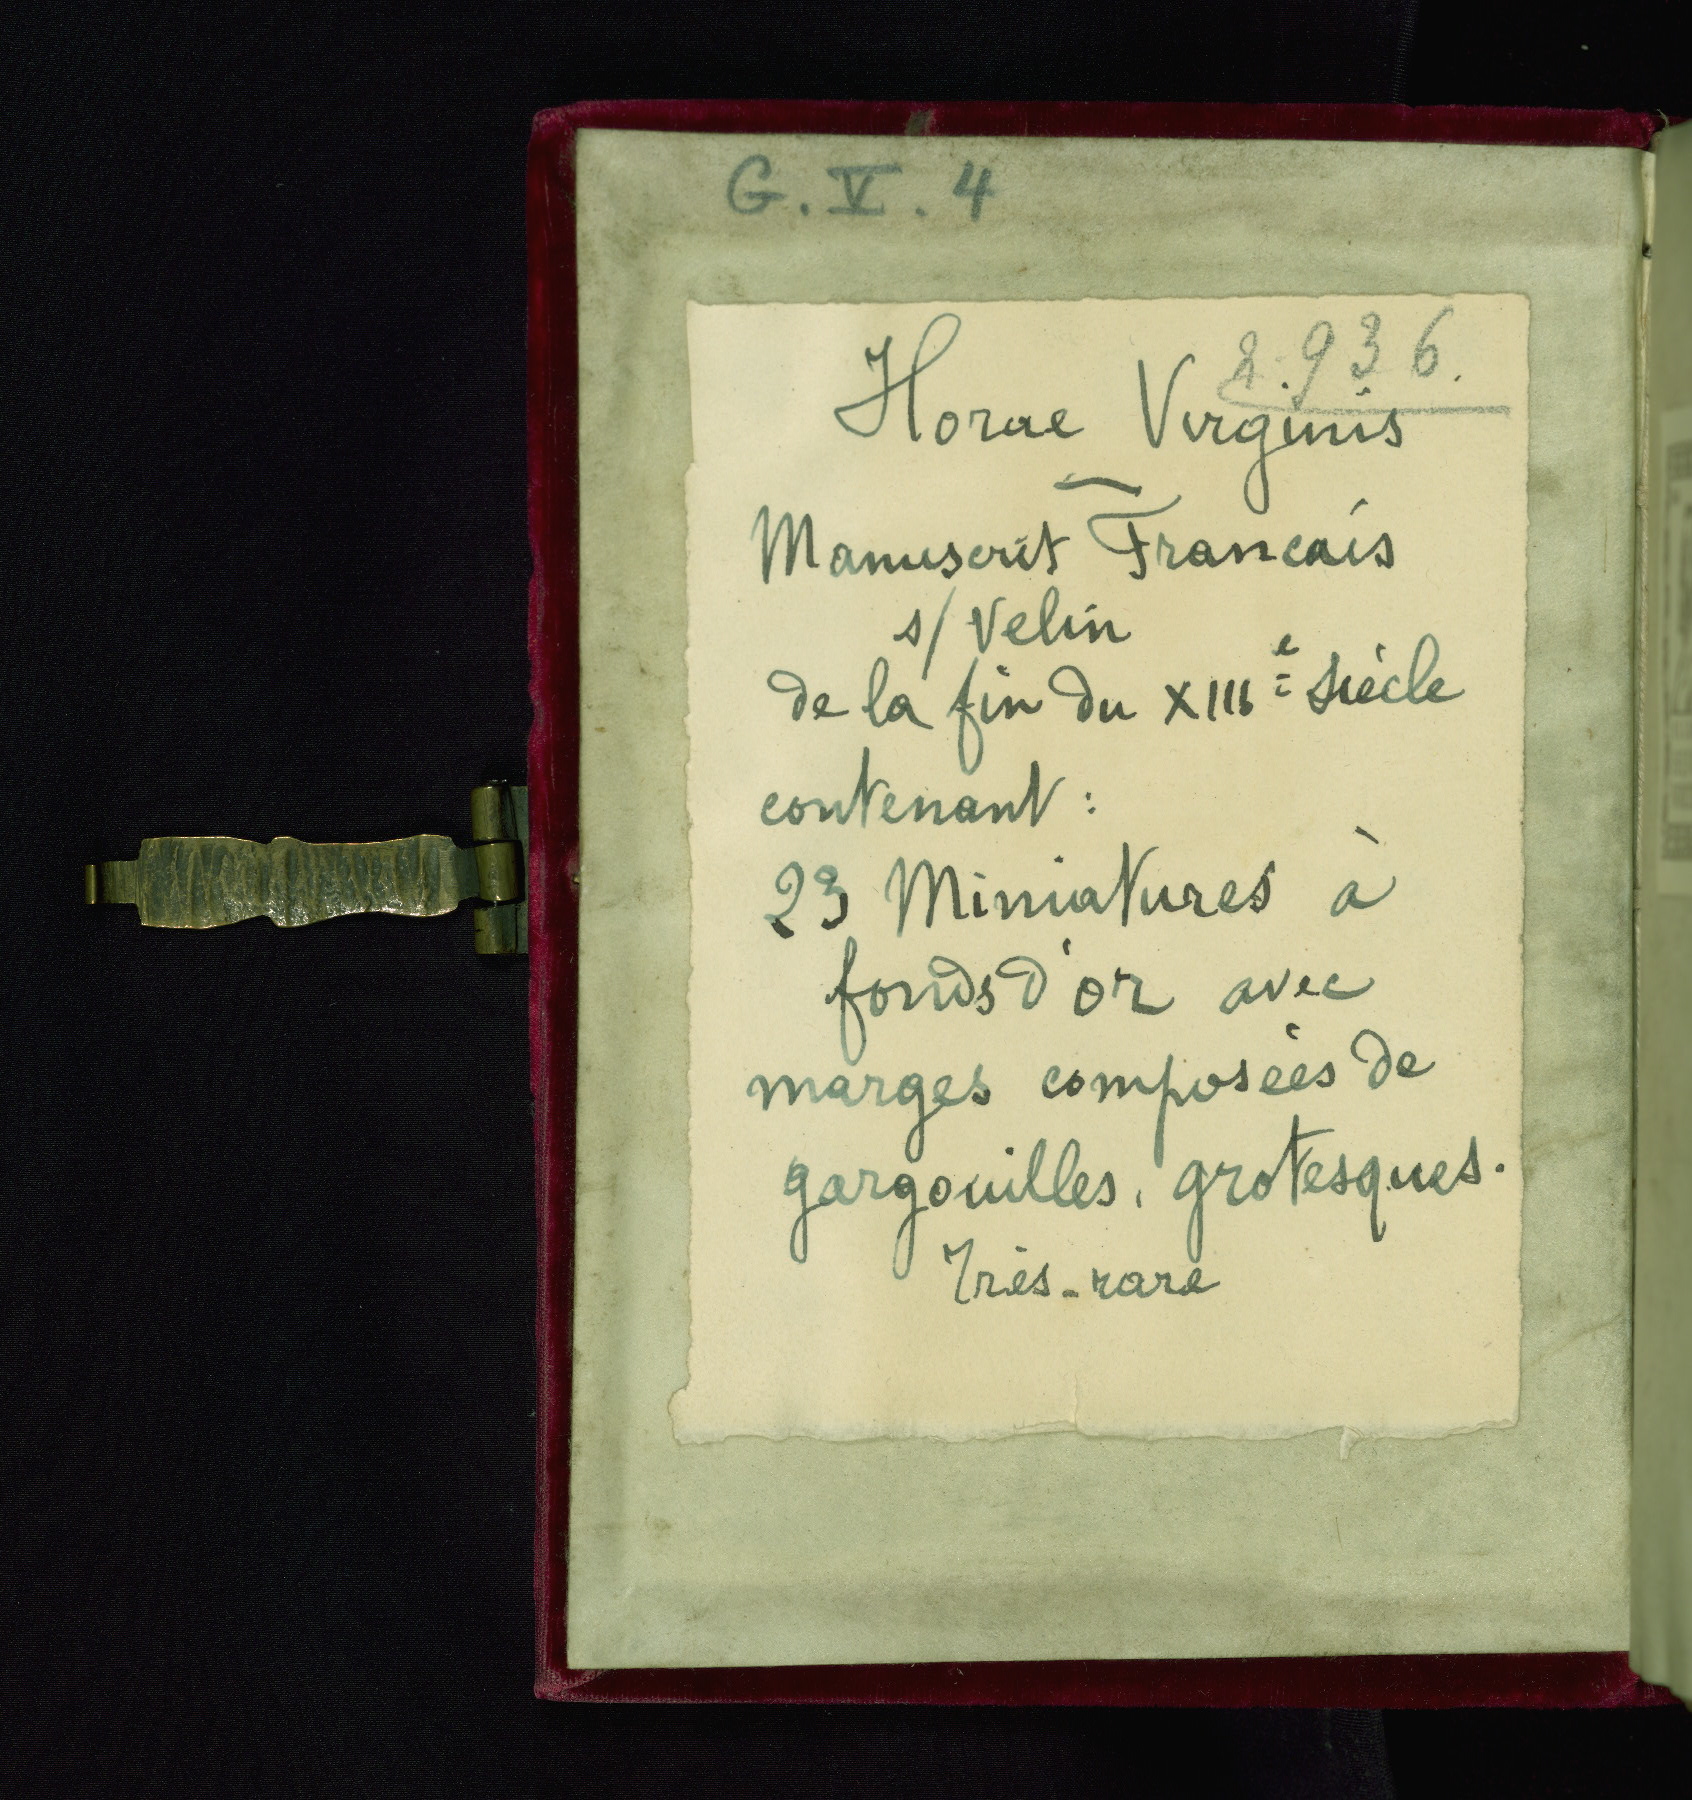 G. V. 4
2.936.
Horae Virginis
Manuscrit Francais
s/ Velin
de la fin du XIIIe Siècle
contenant :
23 Miniatures à
fonds d'or avec
marges composées de
gargouilles, grotesques.
Très-rare